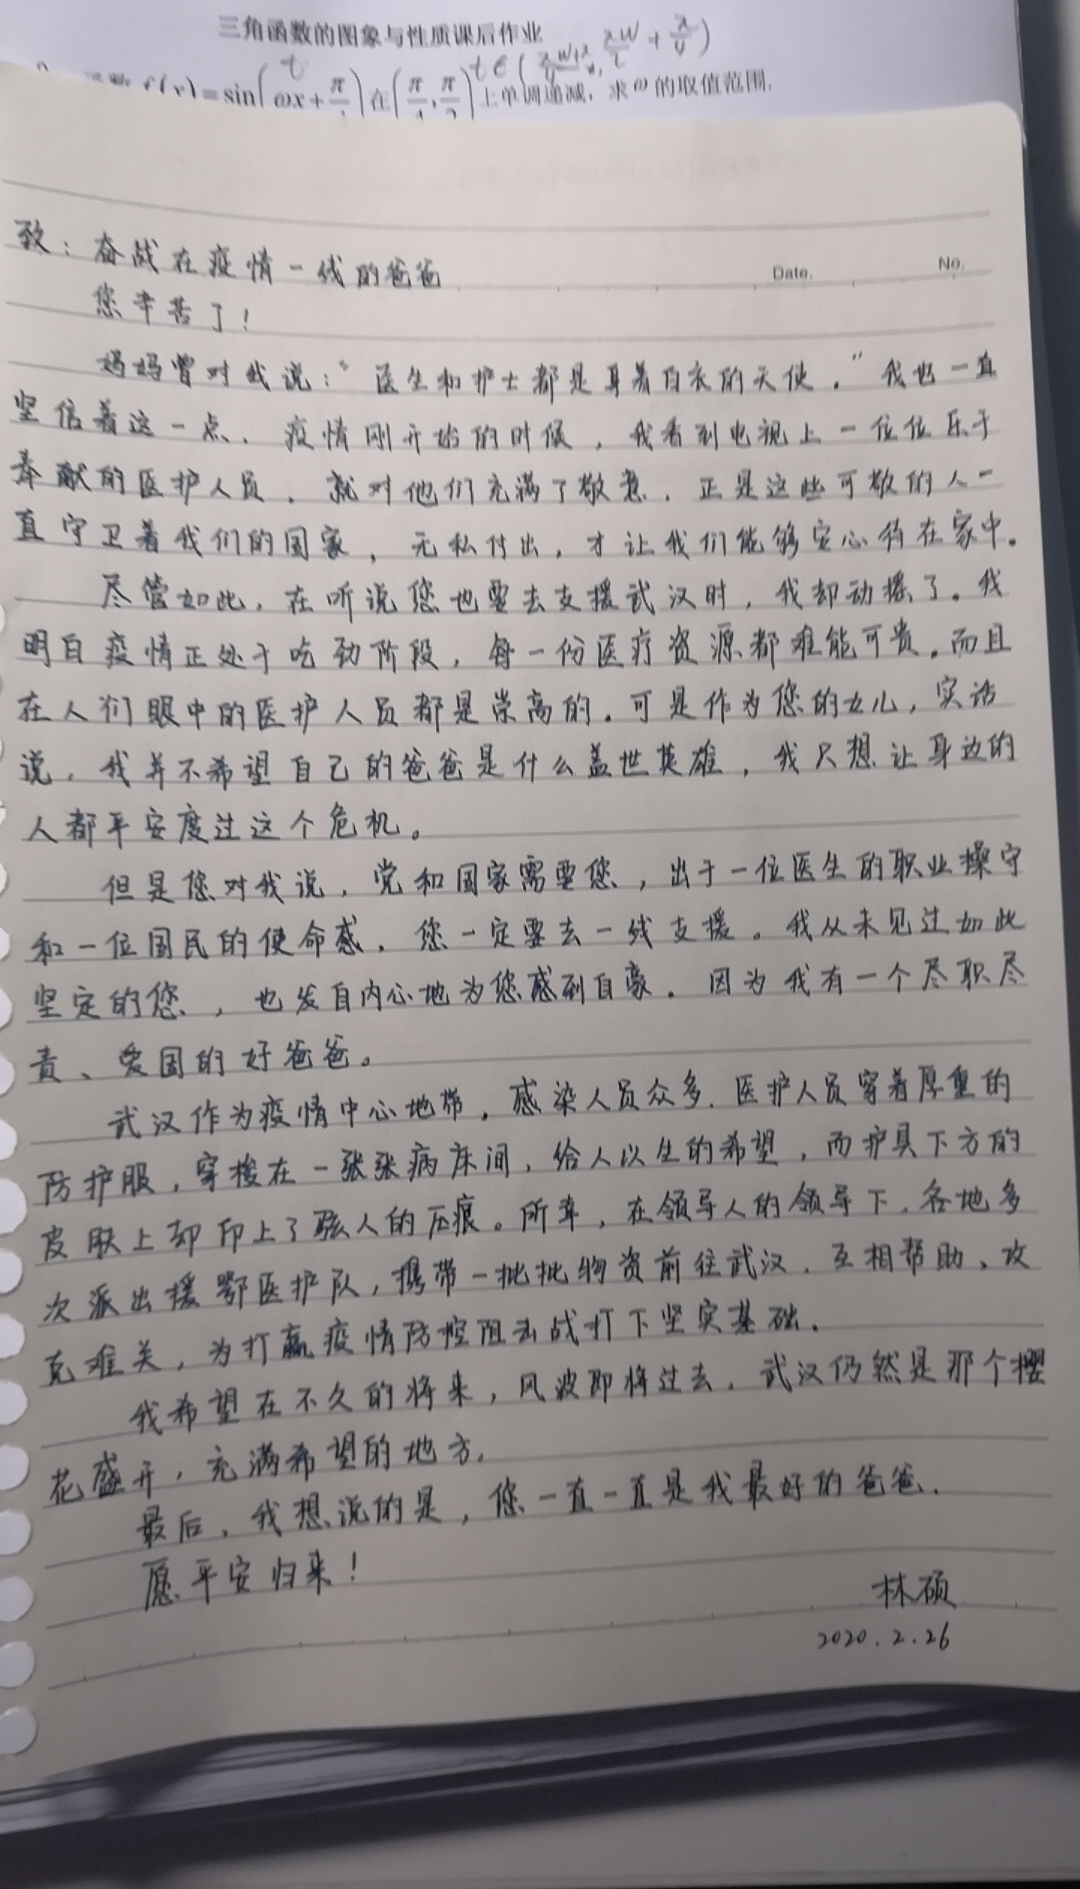 三角函数的图象与性质课后作业
f(x)=sin(ωx+π/4)在(π/4,π/2)上单调递减,求ω的取值范围.
t
t∈(
致:奋战在疫情一线的爸爸
Date.
No.
您辛苦了!
妈妈曾对我说:“医生和护士都是身着白衣的天使.”我也一直
坚信着这一点、疫情刚开始的时候,我看到电视上一位位乐于
奉献的医护人员,就对他们充满了敬意.正是这些可敬的人一
直守卫着我们的国家,无私付出,才让我们能够安心待在家中。
尽管如此,在听说您也要去支援武汉时,我却动摇了。我
明白疫情正处于吃劲阶段,每一份医疗资源都难能可贵.而且
在人们眼中的医护人员都是崇高的.可是作为您的女儿,实话
说,我并不希望自己的爸爸是什么盖世英雄,我只想让身边的
人都平安度过这个危机。
但是您对我说,党和国家需要您,出于一位医生的职业操守
和一位国民的使命感,您一定要去一线支援。我从未见过如此
坚定的您,也发自内心地为您感到自豪.因为我有一个尽职尽
责、爱国的好爸爸。
武汉作为疫情中心地带,感染人员众多.医护人员穿着厚重的
防护服,穿梭在一张张病床间,给人以生的希望,而护具下方的
皮肤上却印上了骇人的压痕。所幸,在领导人的领导下,各地多
次派出援鄂医护队,携带一批批物资前往武汉.互相帮助、攻
克难关,为打赢疫情防控阻击战打下坚实基础.
我希望在不久的将来,风波即将过去.武汉仍然是那个樱
花盛开,充满希望的地方.
最后,我想说的是,您一直一直是我最好的爸爸.
愿平安归来!
林硕
2020.2.26